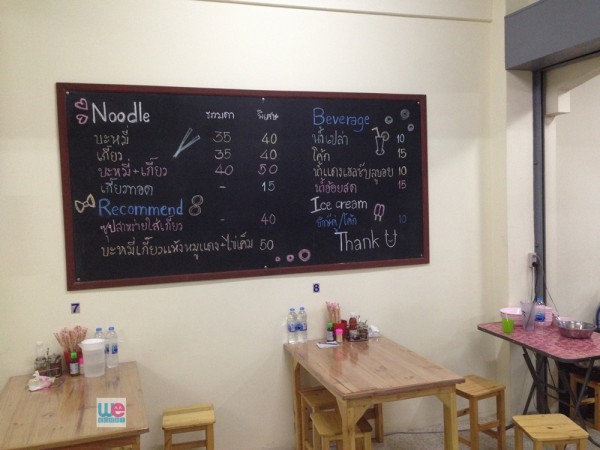 Noodle ธรรมดา พิเศษ
บะหมี่ 35 40
เกี๊ยว 35 40
บะหมี่+เกี๊ยว 40 50
เกี๊ยวทอด - 15
Recommend
ซุปสาหร่ายใส่เกี๊ยว - 40
บะหมี่เกี๊ยวแห้งหมูแดง+ไข่เค็ม 50
Beverage
น้ำเปล่า 10
โค้ก 15
น้ำแดงเฮลซ์บลูบอย 10
น้ำอ้อยสด 15
Ice cream
10
Thank U
7
8
we